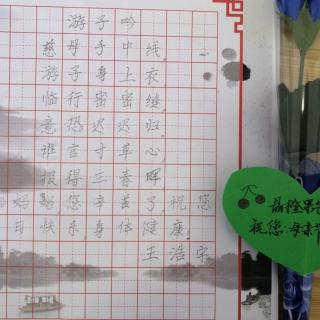 游子吟
慈母手中线,
游子身上衣
临行密密缝,
意恐迟迟归.
谁言寸草心,
报得三春晖
妈妈您辛苦了,祝您
日快乐身体健康.
王浩宇
祝您:母亲节